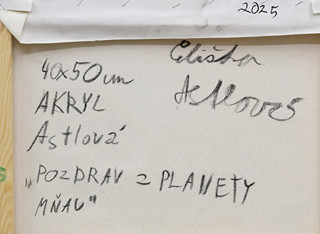 2025
Eliška
Astlová
40x50cm
AKRYL
Astlová
„POZDRAV Z PLANETY
MŇAU"